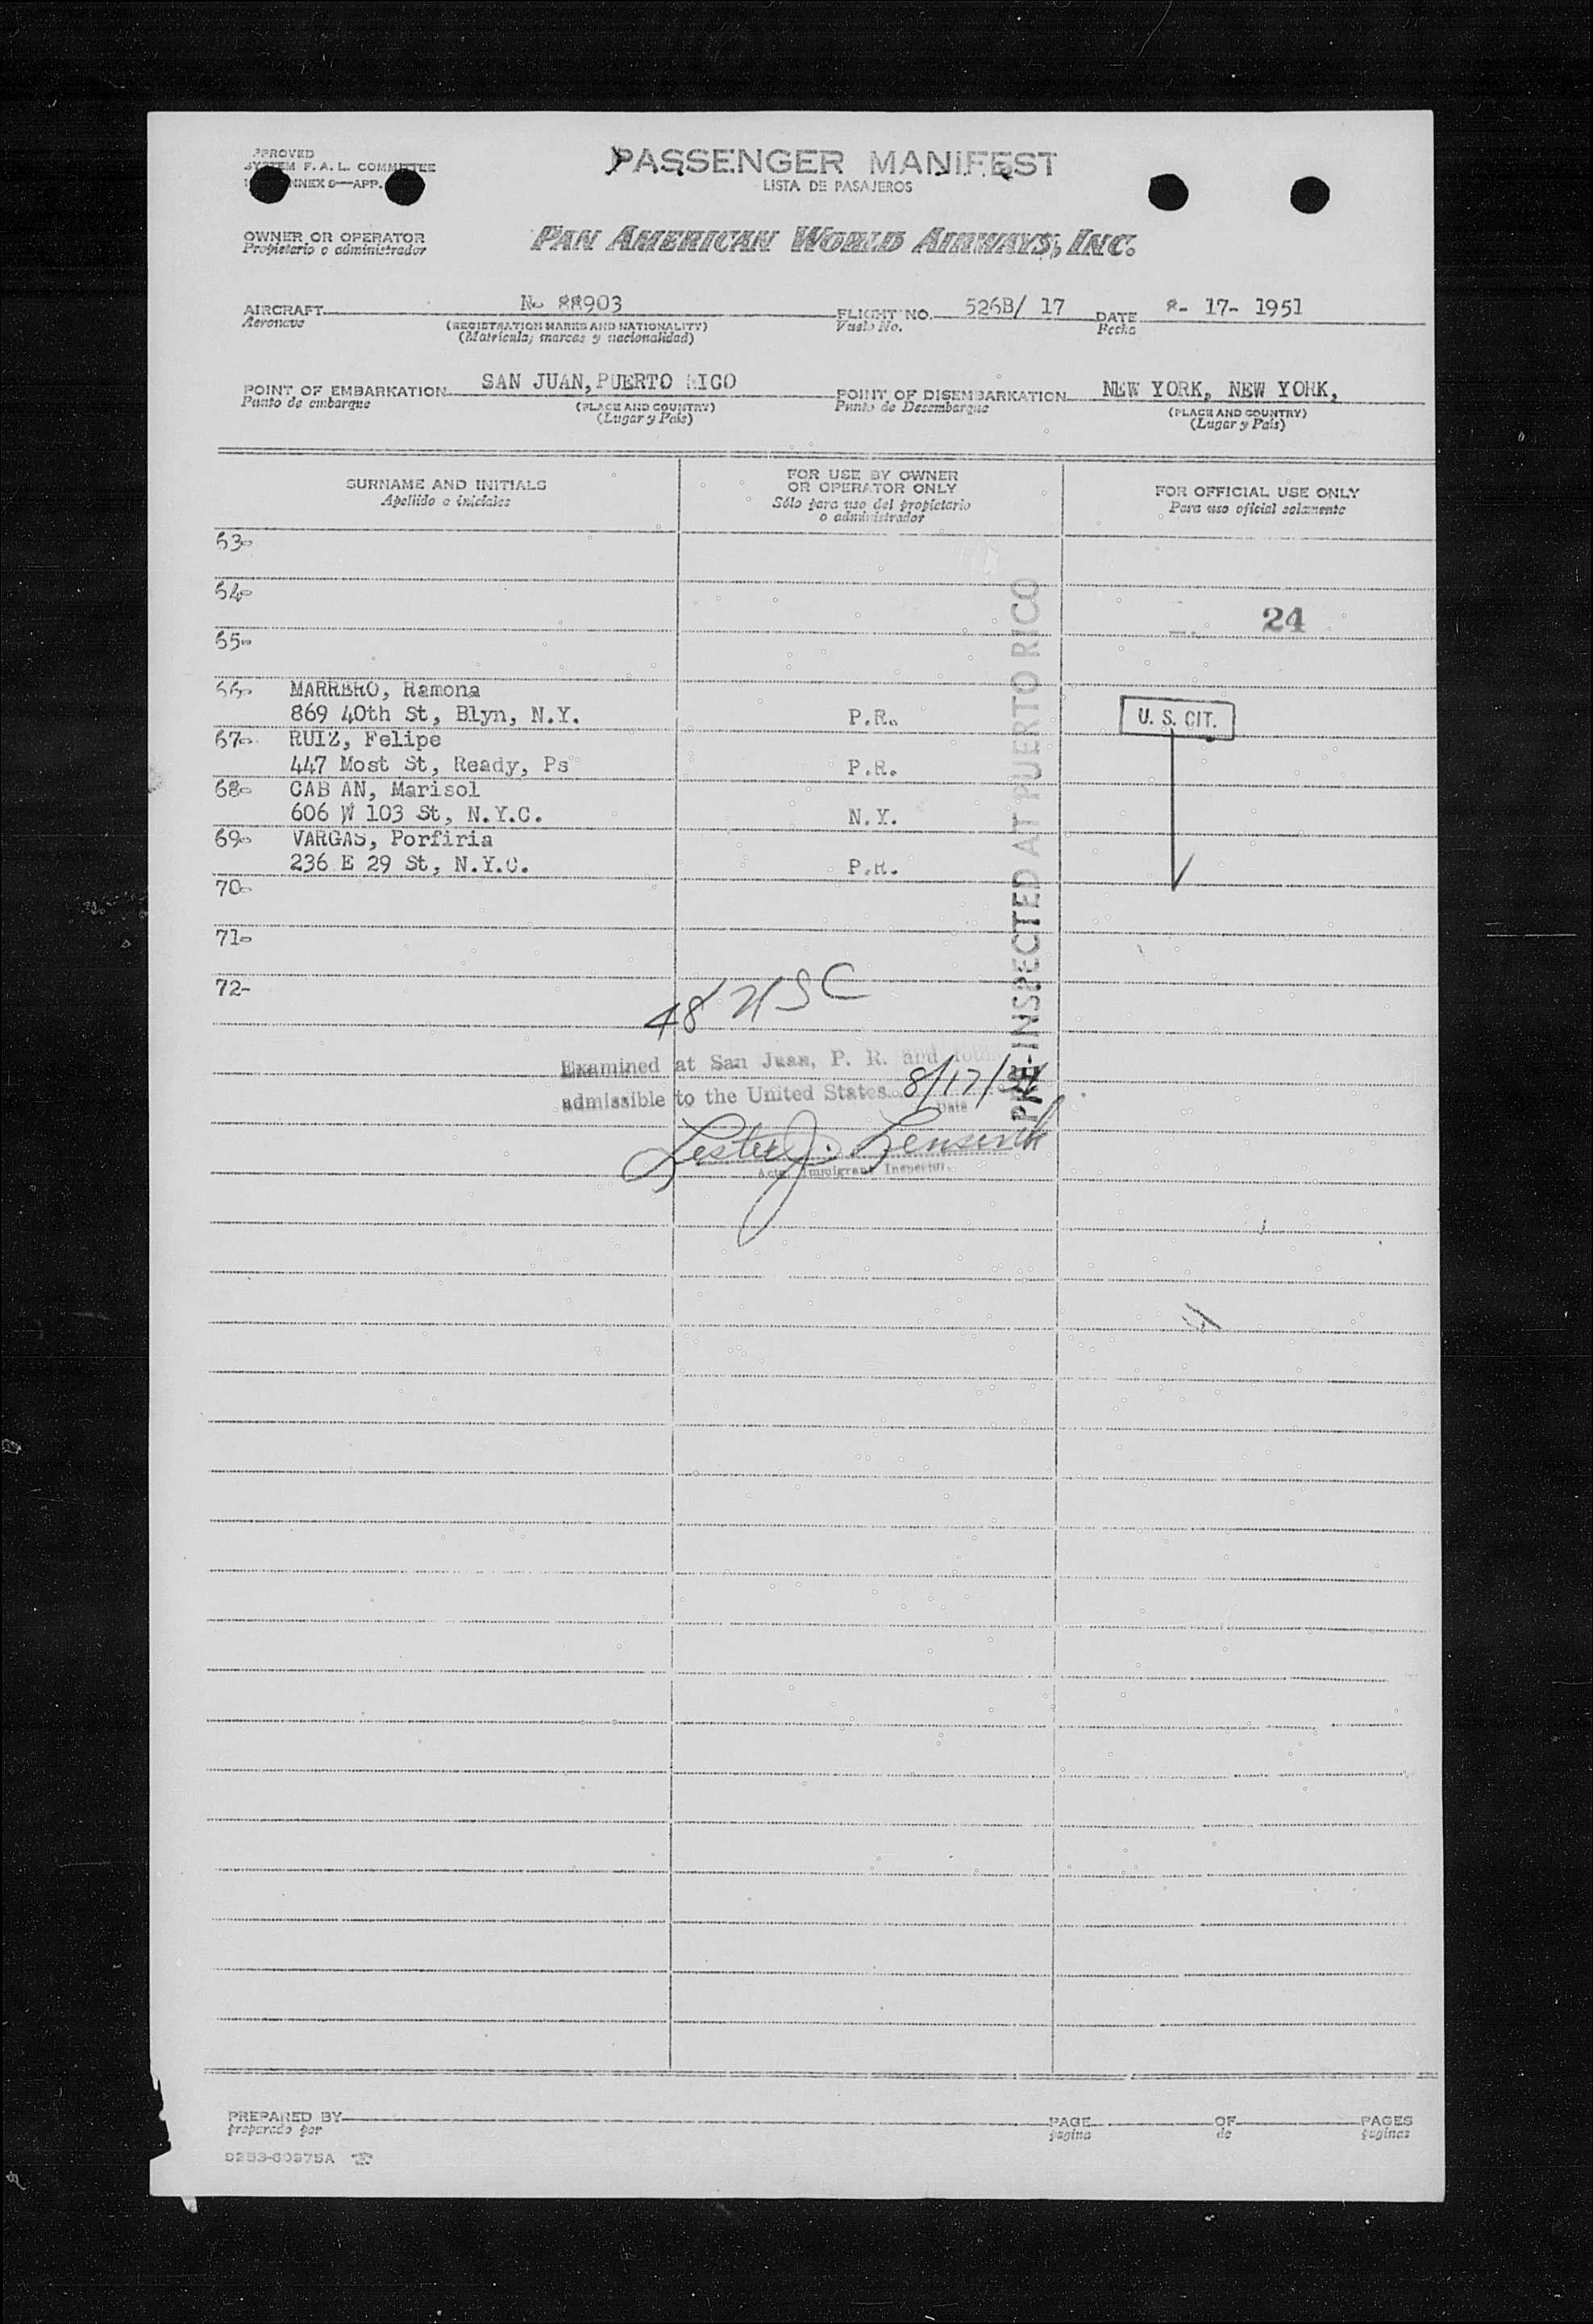 PPROVED
SYSTEM F. A. L. COMMITTEE
NNEX 9—APP.
PASSENGER MANIFEST
LISTA DE PASAJEROS
OWNER OR OPERATOR
Propietario o administrador
PAN AMERICAN WORLD AIRWAYS, INC.
AIRCRAFT No 88903 FLIGHT NO. 526B/ 17 DATE 8- 17- 1951
Aeronave (REGISTRATION MARKS AND NATIONALITY) Vuelo No. Fecha
(Matrícula; marcas y nacionalidad)
POINT OF EMBARKATION SAN JUAN, PUERTO RICO POINT OF DISEMBARKATION NEW YORK, NEW YORK,
Punto de embarque (PLACE AND COUNTRY) Punto de Desembarque (PLACE AND COUNTRY)
(Lugar y País) (Lugar y País)
SURNAME AND INITIALS
Apellido e iniciales
FOR USE BY OWNER
OR OPERATOR ONLY
Sólo para uso del propietario
o administrador
FOR OFFICIAL USE ONLY
Para uso oficial solamente
63-
64-
24
65-
66- MARRERO, Ramona
869 40th St, Blyn, N.Y. P.R. U. S. CIT.
67- RUIZ, Felipe
447 Most St, Ready, Ps P.R.
68- CAB AN, Marisol
606 W 103 St, N.Y.C. N.Y.
69- VARGAS, Porfiria
236 E 29 St, N.Y.C. P.R.
70-
71-
72-
PRE-INSPECTED AT PUERTO RICO
48 USC
Examined at San Juan, P. R. and
admissible to the United States 8/17/51
Date
Lester J.
Actg. Immigrant Inspector
PREPARED BY PAGE OF PAGES
preparado por página de páginas